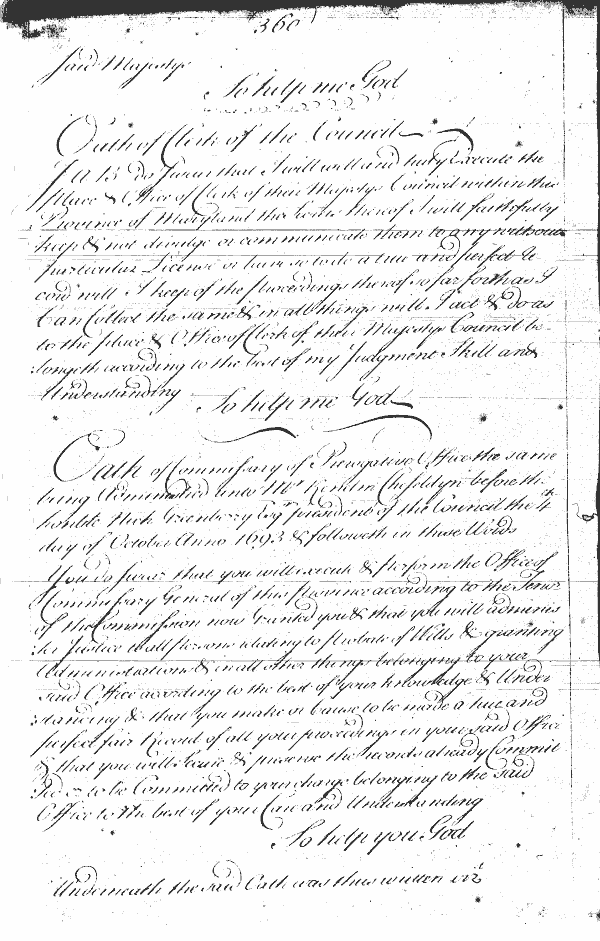 360
said Majestys
So help me God
Oath of Clerk of the Council
I A B do swear that I will well and truly Execute the
Place & Office of Clerk of their Majestys Council within this
Province of Maryland the Secrets thereof I will faithfully
keep & not divulge or communicate them to any without
particular License or leave so to do a true and perfect
will I keep of the proceedings thereof so far forth as I
Can Collect the same & in all things will I act & do as
to the place & Office of Clerk of their Majestys Council be
longeth according to the best of my Judgment Skill and
Understanding
So help me God
Oath of Commissary of Prerogative Office the same
being Administred unto Mr Kenelm Cheseldyn before the
honble Nich Greenberry Esqr president of the Council the 4th
day of October Anno 1693 & followeth in these Words
You do swear that you will execute & perform the Office of
Commissary General of this province according to the Tenor
of the Commission now Granted you & that you will adminis
ter Justice to all persons relating to probate of Wills & granting
Administrations & in all other things belonging to your
said Office according to the best of your knowledge & Under
standing & that you make or cause to be made a true and
perfect fair Record of all your proceedings in your said Office
& that you will secure & preserve the records already Commit
ted or to be Committed to your charge belonging to the said
Office to the best of your Care and Understanding
So help you God
Underneath the said Oath was thus written vizt